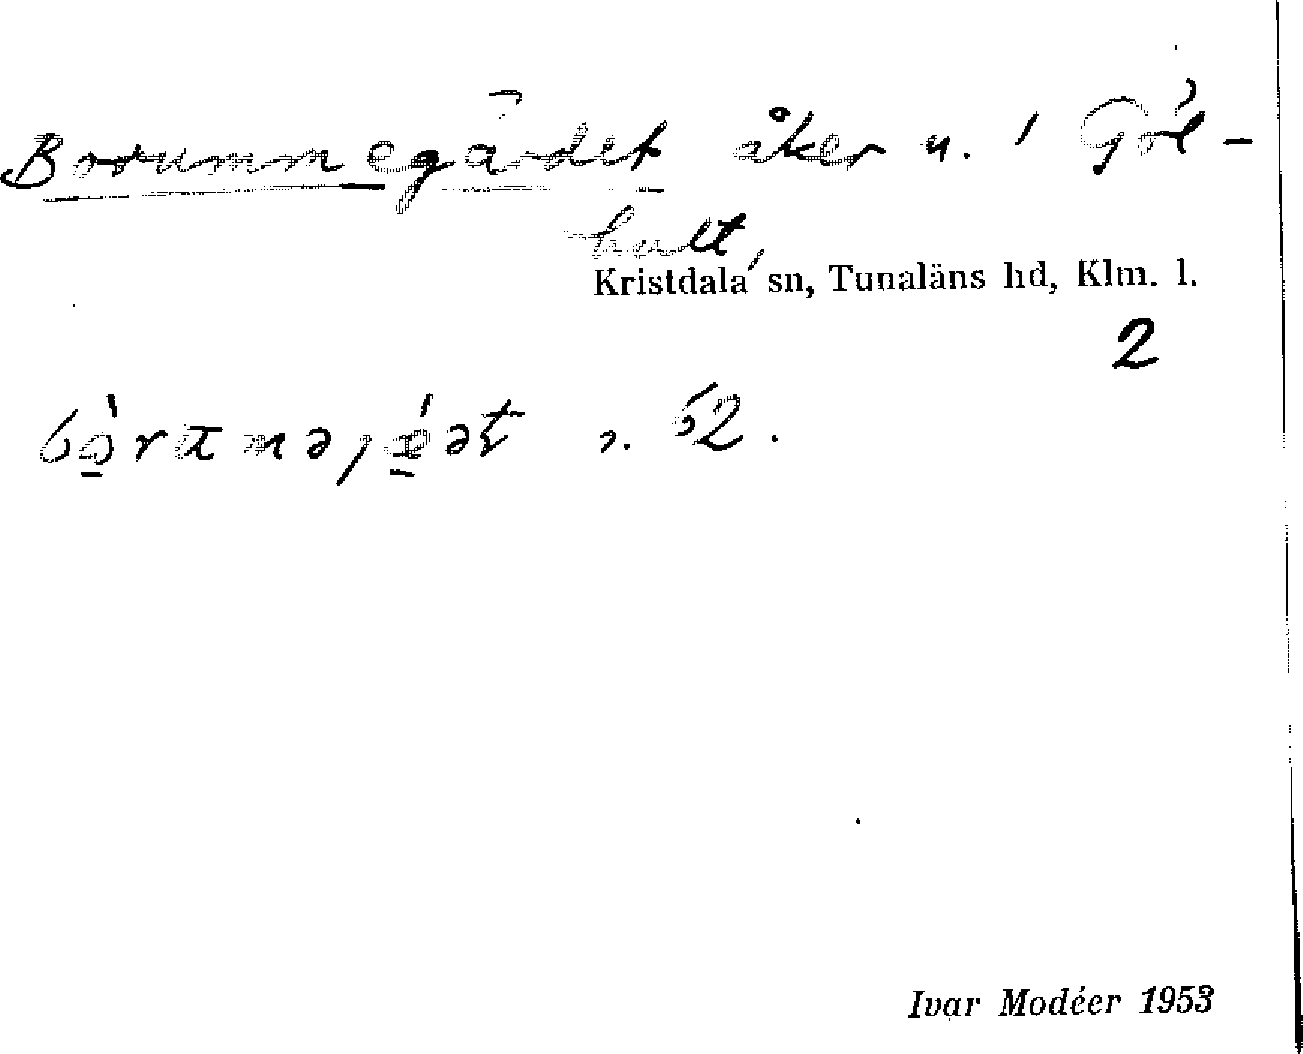 Borummegärdet åker u. i Göl-
hult,
Kristdala sn, Tunaläns hd, Klm. l.
2
52.
Ivar Modéer 1953